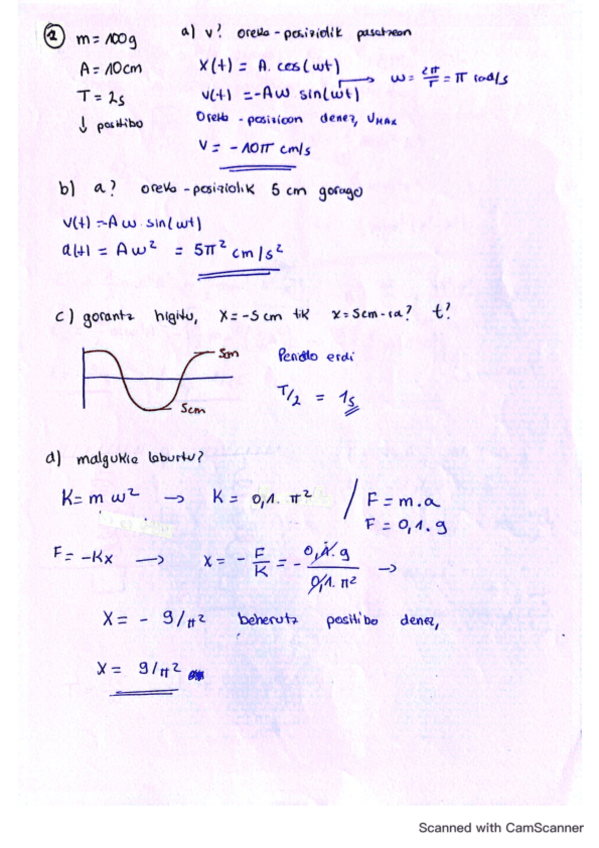 2) m = 100g
A = 10cm
T = 2s
↓ positibo
a) v? oreka-posiziotik pasatzean
X(t) = A. cos(ωt)
v(t) = -Aω sin(ωt) → ω = 2π/T = π rad/s
Oreka-posizioan denez, VMAX
V = -10π cm/s
b) a? oreka-posiziotik 5 cm gorago
v(t) = -A ω. sin(ωt)
a(t) = A ω² = 5π² cm/s²
c) gorantz higitu, X = -5cm tik x = 5cm-ra? t?
5cm
5cm
Periodo erdi
T/2 = 1s
d) malgukia laburtu?
K = m ω² → K = 0,1. π² / F = m.a
F = 0,1. g
F = -Kx → x = - F/K = - 0,1. g / 0,1. π² →
X = - g/π² beherutz positibo denez,
X = g/π²
Scanned with CamScanner